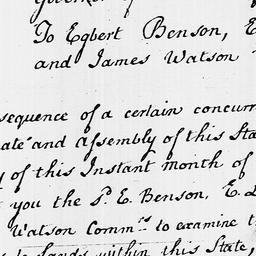 To Egbert Benson, E
and James Watson
sequence of a certain concurr
ate and Assembly of this Sta
y of this Instant month of
t you the Sd. E. Benson, E. L
Watson Commrs to examine t
to lands within this State,